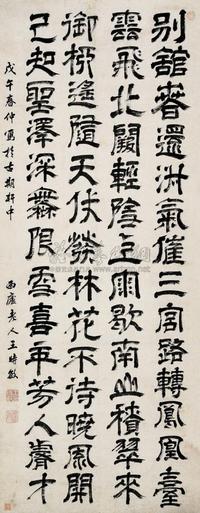 別舘春還淑氣催三宮路轉鳳凰臺
雲飛北闕輕陰上雨歇南山積翠來
御柳遙隨天仗發林花不待曉風開
已知聖澤深無限更喜年芳入睿才
戊午春仲寫於古期軒中 西廬老人王時敏